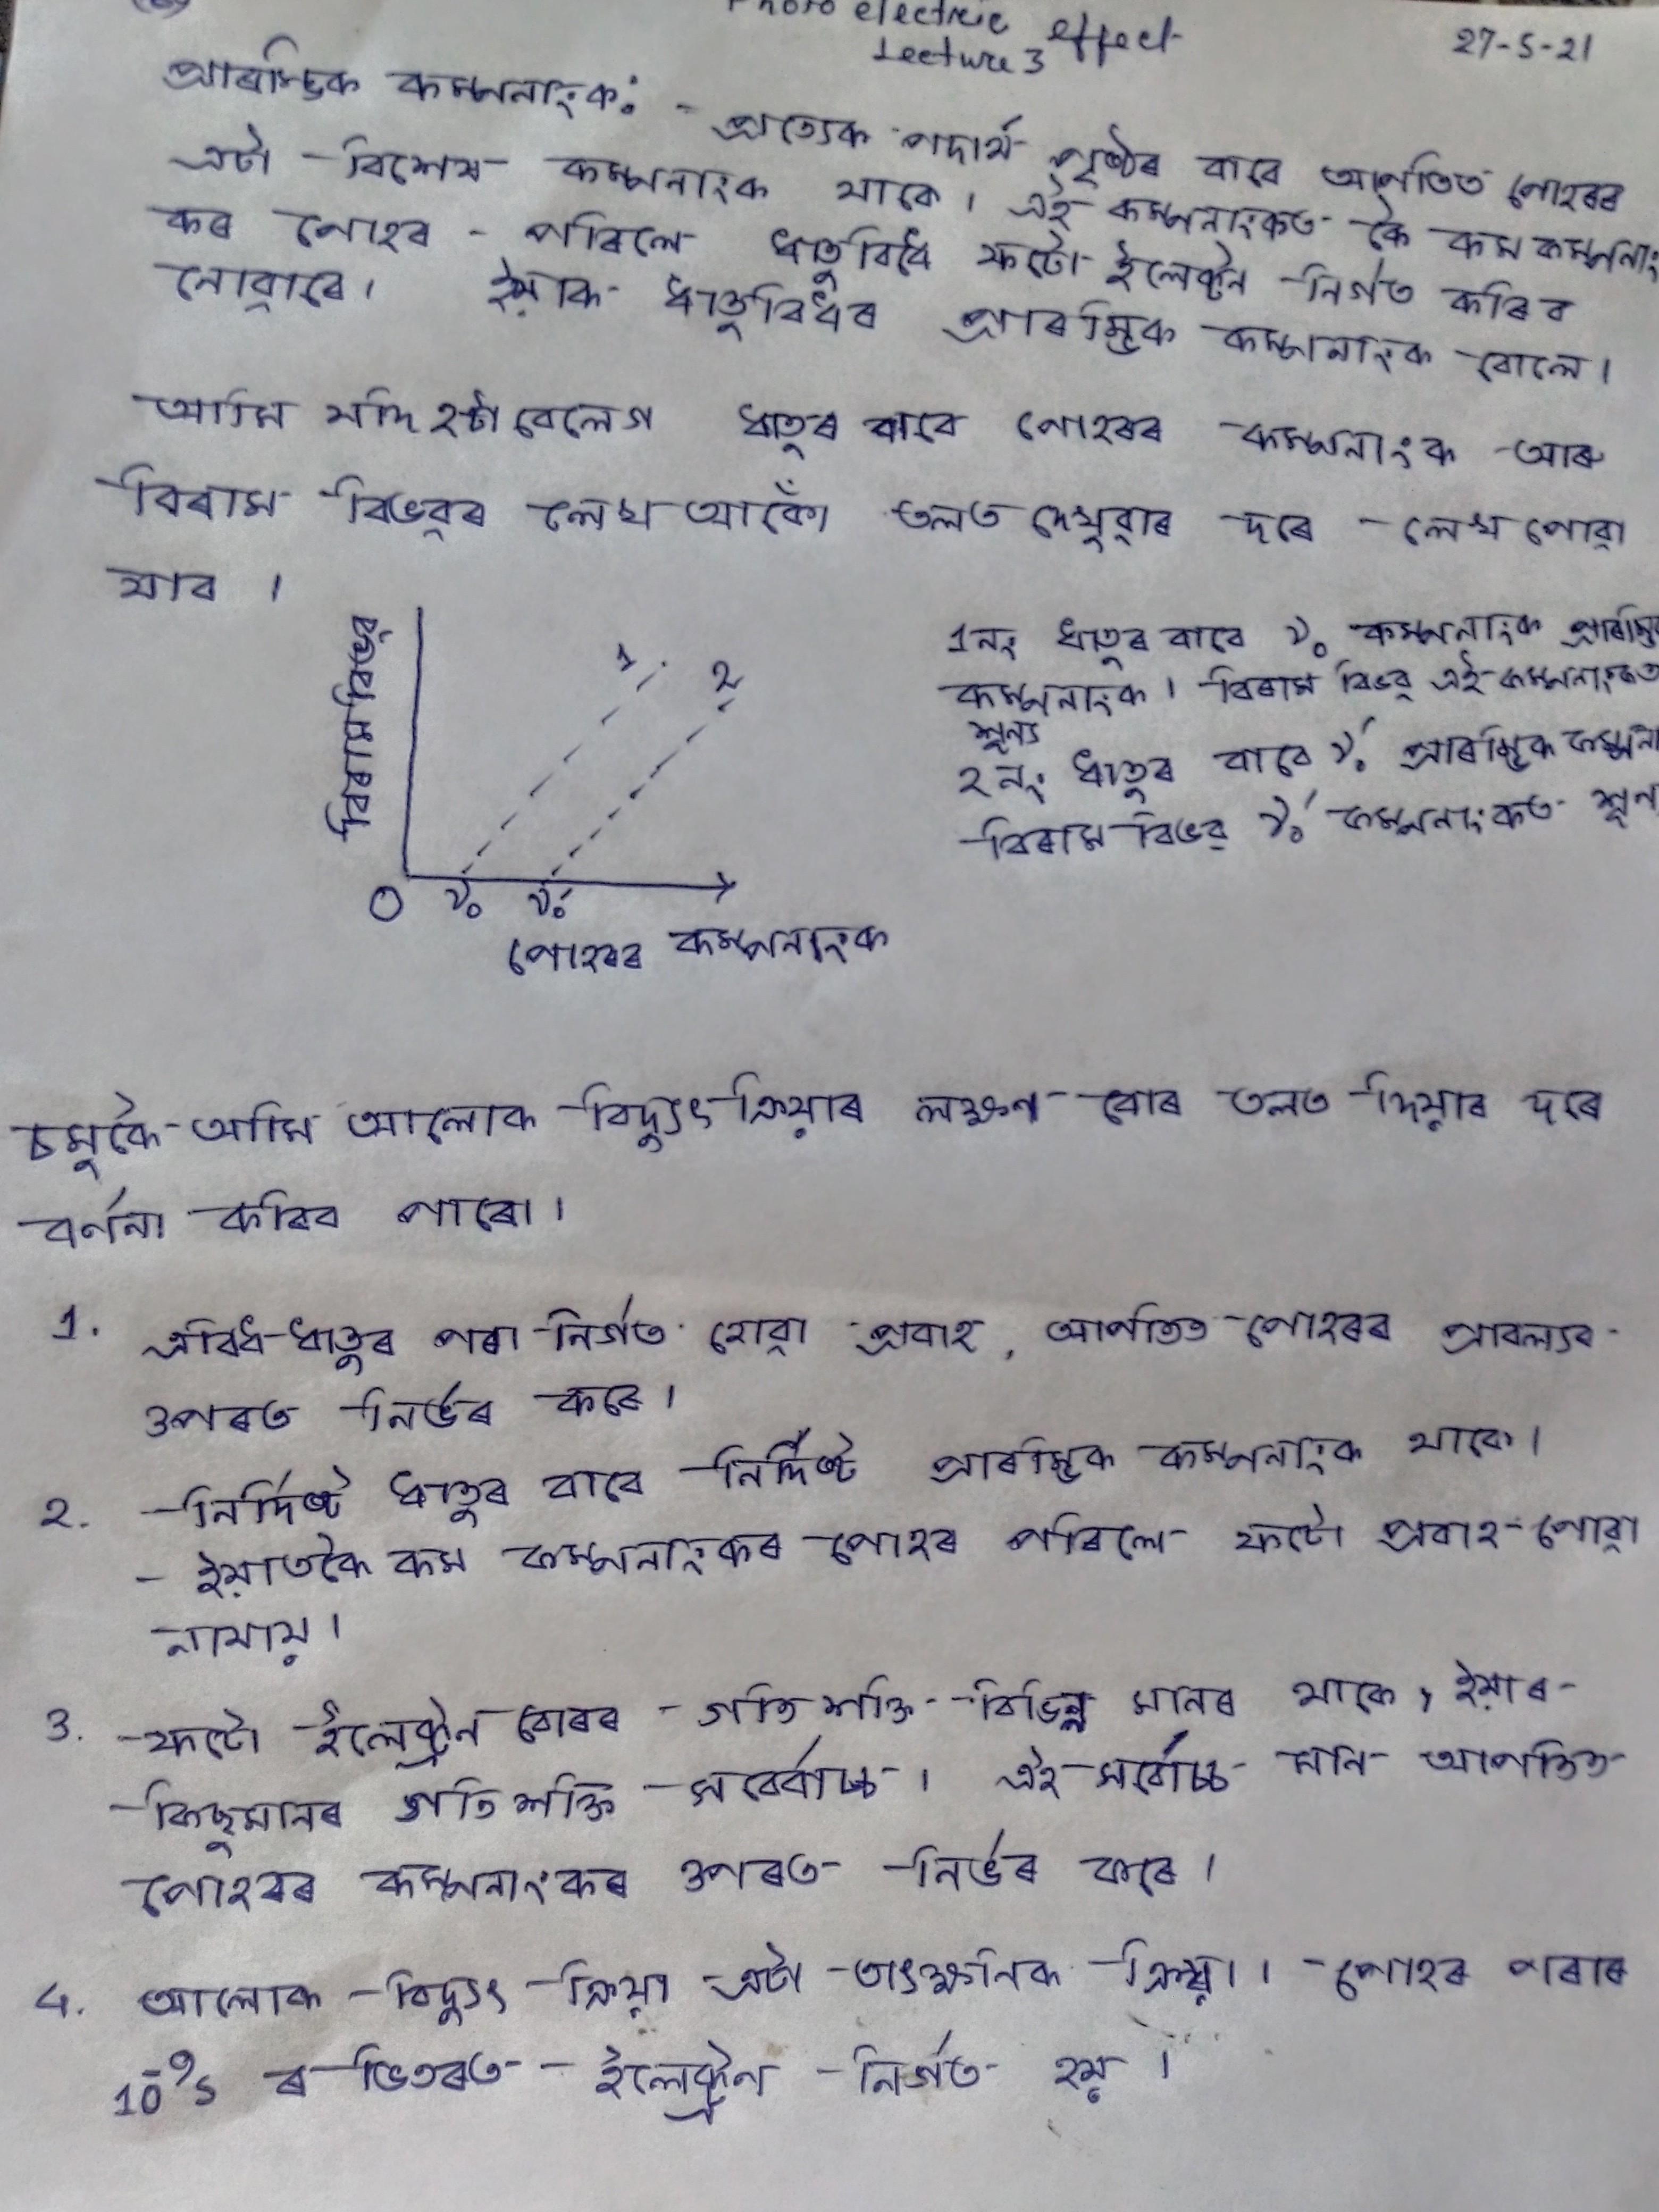 Photo electric effect
Lecture 3
27-5-21
প্ৰাৰম্ভিক কম্পনাংক: - প্ৰত্যেক পদাৰ্থ পৃষ্ঠৰ বাবে আপতিত পোহৰৰ
এটা বিশেষ কম্পনাংক থাকে। এই কম্পনাংকত কৈ কম কম্পনাং
কৰ পোহৰ পৰিলে ধাতুবিধে ফটো ইলেক্ট্ৰন নিৰ্গত কৰিব
নোৱাৰে। ইয়াক ধাতুবিধৰ প্ৰাৰম্ভিক কম্পনাংক বোলে।
আমি যদি ২টা বেলেগ ধাতুৰ বাবে পোহৰৰ কম্পনাংক আৰু
বিৰাম বিভৱৰ লেখ আকোঁ তলত দেখুৱাৰ দৰে লেখ পোৱা
যাব ।
বিৰাম বিভৱ
1
2
O ν₀ ν₀′
পোহৰৰ কম্পনাংক
1নং ধাতুৰ বাবে ν₀ কম্পনাংক প্ৰাৰম্ভি
কম্পনাংক। বিৰাম বিভৱ এই কম্পনাংকত
শূন্য
২নং ধাতুৰ বাবে ν₀′ প্ৰাৰম্ভিক কম্পনা
বিৰাম বিভৱ ν₀′ কম্পনাংকত শূন
চমুকৈ আমি আলোক বিদ্যুৎ ক্ৰিয়াৰ লক্ষণ বোৰ তলত দিয়াৰ দৰে
বৰ্ণনা কৰিব পাৰো।
1. এবিধ ধাতুৰ পৰা নিৰ্গত হোৱা প্ৰবাহ, আপতিত পোহৰৰ প্ৰাবল্যৰ
ওপৰত নিৰ্ভৰ কৰে।
2. নিৰ্দিষ্ট ধাতুৰ বাবে নিৰ্দিষ্ট প্ৰাৰম্ভিক কম্পনাংক থাকে।
- ইয়াতকৈ কম কম্পনাংকৰ পোহৰ পৰিলে ফটো প্ৰবাহ পোৱা
নাযায়।
3. ফটো ইলেক্ট্ৰন বোৰৰ গতি শক্তি বিভিন্ন মানৰ থাকে, ইয়াৰ
কিছুমানৰ গতি শক্তি সৰ্বোচ্চ। এই সৰ্বোচ্চ মান আপতিত
পোহৰৰ কম্পনাংকৰ ওপৰত নিৰ্ভৰ কৰে।
4. আলোক বিদ্যুৎ ক্ৰিয়া এটা তাৎক্ষনিক ক্ৰিয়া। পোহৰ পৰাৰ
10⁻⁹s ৰ ভিতৰত ইলেক্ট্ৰন নিৰ্গত হয়।